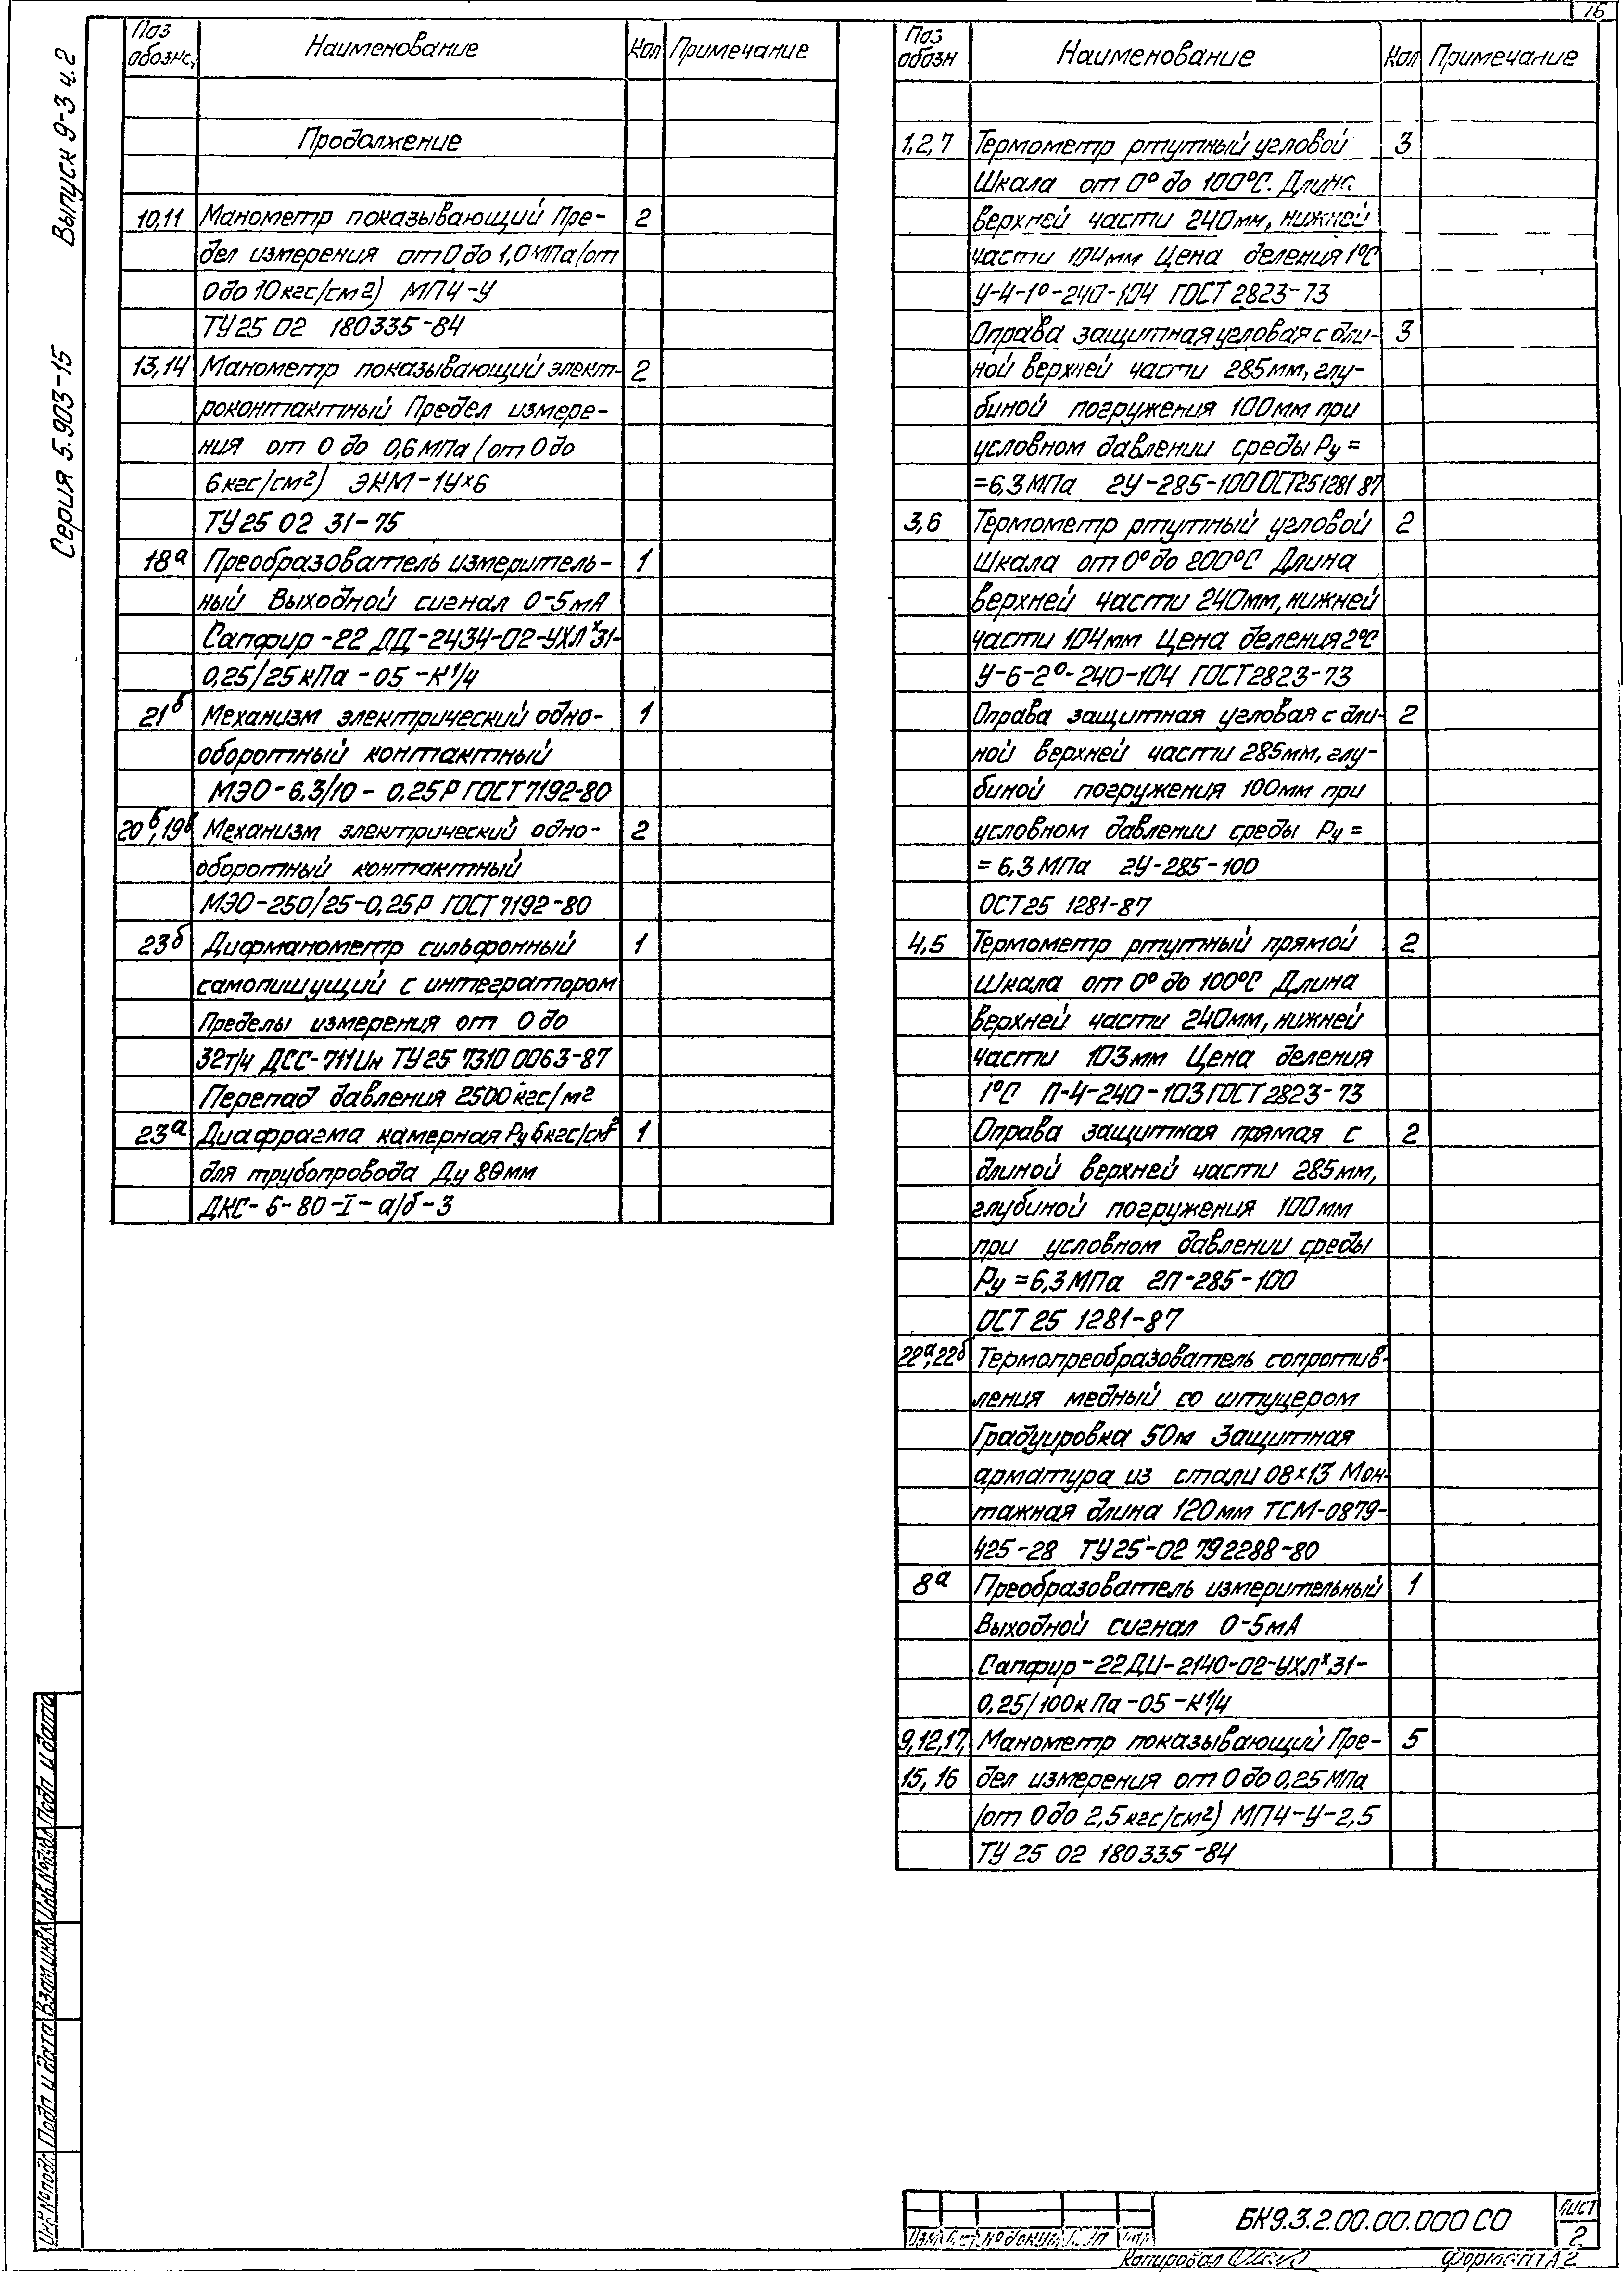 16
Серия 5.903-15 Выпуск 9-3 ч.2
Поз обознс, Наименование Кол Примечание
Продолжение
10,11 Манометр показывающий Пре- 2
дел измерения от 0 до 1,0 МПа (от
0 до 10 кгс/см2) МП4-У
ТУ 25 02 180335-84
13,14 Манометр показывающий элект- 2
роконтактный Предел измере-
ния от 0 до 0,6 МПа (от 0 до
6 кгс/см2) ЭКМ-1У×6
ТУ 25 02 31-75
18а Преобразователь измеритель- 1
ный Выходной сигнал 0-5мА
Сапфир-22 ДД-2434-02-УХЛх31-
0,25/25 кПа-05-К1/4
21б Механизм электрический одно- 1
оборотный контактный
МЭО-6,3/10-0,25Р ГОСТ 7192-80
20б,19в Механизм электрический одно- 2
оборотный контактный
МЭО-250/25-0,25Р ГОСТ 7192-80
23б Дифманометр сильфонный 1
самопишущий с интегратором
Пределы измерения от 0 до
32т/ч ДСС-711Ин ТУ 25 7310 0063-87
Перепад давления 2500 кгс/м2
23а Диафрагма камерная Ру 6 кгс/см2 1
для трубопровода Ду 80мм
ДКС-6-80-I-а/б-3
Поз обозн Наименование Кол Примечание
1,2,7 Термометр ртутный угловой 3
Шкала от 0° до 100°С. Длина
верхней части 240мм, нижней
части 104мм Цена деления 1°С
У-4-1°-240-104 ГОСТ 2823-73
Оправа защитная угловая с дли- 3
ной верхней части 285мм, глу-
биной погружения 100мм при
условном давлении среды Ру=
=6,3 МПа 2У-285-100 ОСТ25 1281 87
3,6 Термометр ртутный угловой 2
Шкала от 0° до 200°С Длина
верхней части 240мм, нижней
части 104мм Цена деления 2°С
У-6-2°-240-104 ГОСТ 2823-73
Оправа защитная угловая с дли- 2
ной верхней части 285мм, глу-
биной погружения 100мм при
условном давлении среды Ру=
=6,3 МПа 2У-285-100
ОСТ25 1281-87
4,5 Термометр ртутный прямой 2
Шкала от 0° до 100°С Длина
верхней части 240мм, нижней
части 103мм Цена деления
1°С П-4-240-103 ГОСТ 2823-73
Оправа защитная прямая с 2
длиной верхней части 285мм,
глубиной погружения 100мм
при условном давлении среды
Ру=6,3 МПа 2П-285-100
ОСТ 25 1281-87
22а,22б Термопреобразователь сопротив-
ления медный со штуцером
Градуировка 50м Защитная
арматура из стали 08×13 Мон-
тажная длина 120мм ТСМ-0879-
425-28 ТУ25-02 792288-80
8а Преобразователь измерительный 1
Выходной сигнал 0-5мА
Сапфир-22ДИ-2140-02-УХЛх31-
0,25/100 кПа-05-К1/4
9,12,17, Манометр показывающий Пре- 5
15,16 дел измерения от 0 до 0,25 МПа
(от 0 до 2,5 кгс/см2) МП4-У-2,5
ТУ 25 02 180335-84
Инв.№подл. Подп и дата Взам.инв.№ Инв.№дубл. Подп и дата
Изм Лист №докум
БК9.3.2.00.00.000 СО
Лист
2
Копировал
Формат А2